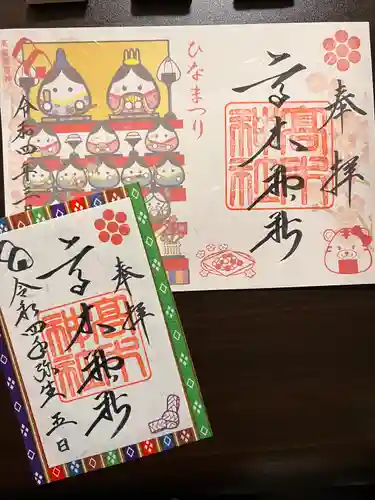 奉拝
高木神社
高木神社
ひなまつり
奉拝
高木神社
高木神社
令和四年弥生五日